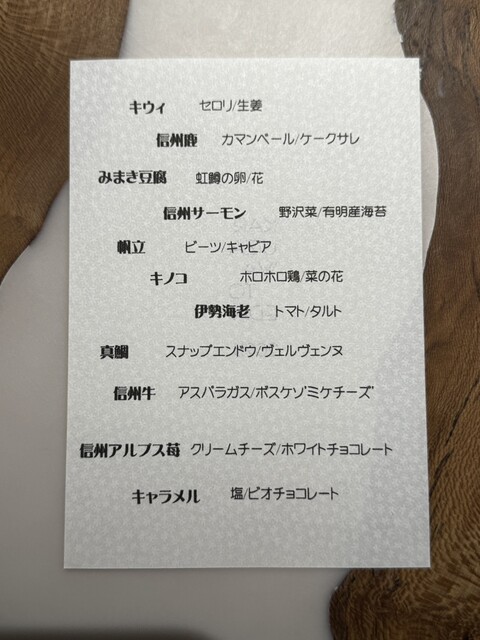 キウィ セロリ/生姜
信州鹿 カマンベール/ケークサレ
みまき豆腐 虹鱒の卵/花
信州サーモン 野沢菜/有明産海苔
帆立 ビーツ/キャビア
キノコ ホロホロ鶏/菜の花
伊勢海老 トマト/タルト
真鯛 スナップエンドウ/ヴェルヴェンヌ
信州牛 アスパラガス/ボスケソ゛ミケチーズ
信州アルプス苺 クリームチーズ/ホワイトチョコレート
キャラメル 塩/ビオチョコレート